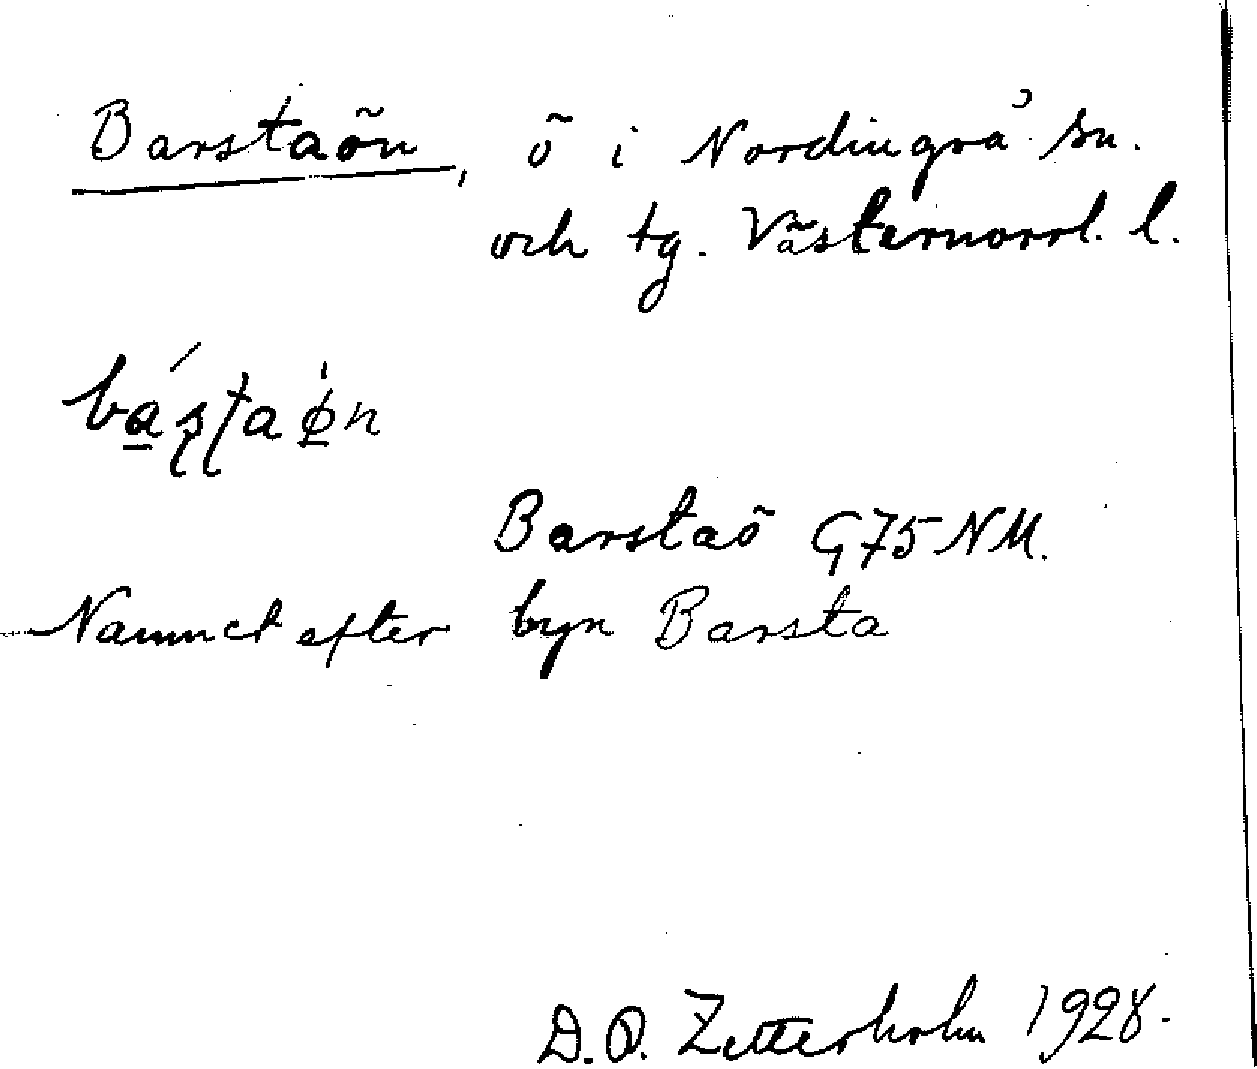 Barstaön, ö i Nordingrå sn.
och tg. Västernorrl. l.
bá̱ʂʈa ø̱̍n
Barstaö G75NM.
Namnet efter byn Barsta
D.O. Zetterholm 1928.